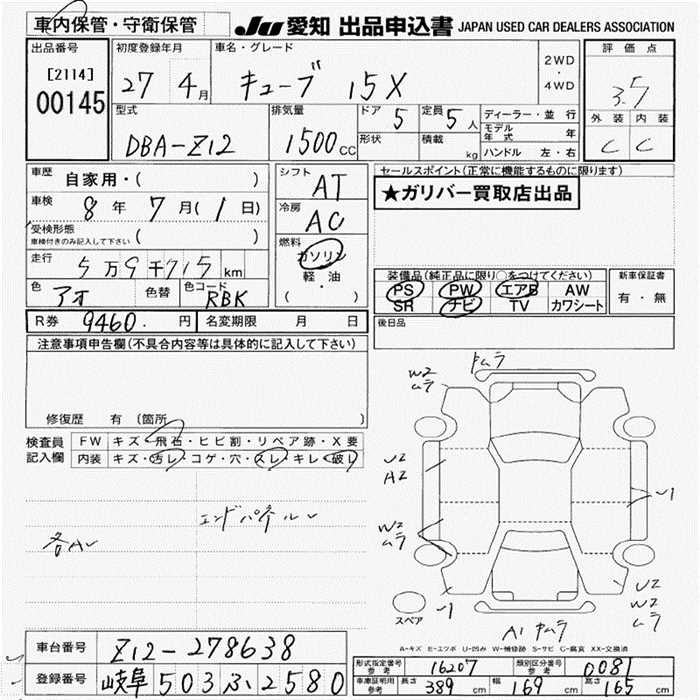 車内保管・守衛保管
JU 愛知 出品申込書 JAPAN USED CAR DEALERS ASSOCIATION
出品番号
[2114]
00145
初度登録年月
27 4月
車名・グレード
キューブ 15X
2WD
・
4WD
評価点
3.5
外装 内装
C C
型式
DBA-Z12
排気量
1500 CC
ドア 5
定員 5人
形状
積載 kg
ディーラー・並行
モデル年式 年
ハンドル 左・右
車歴 自家用・( )
車検 8年 7月(1日)
受検形態
車検付きのみ記入して下さい ( )
走行 5万9千715km
色 アオ 色替 色コード RBK
シフト AT
冷房 AC
燃料
ガソリン
軽・油
( )
セールスポイント(正常に機能するものに限ります)
★ガリバー買取店出品
装備品(純正品に限り○をつけてください)
PS PW エアB AW
SR ナビ TV カワシート
新車保証書
有・無
R券 9460. 円 名変期限 月 日
後日品
注意事項申告欄(不具合内容等は具体的に記入して下さい)
修復歴 有 (箇所 )
検査員記入欄
FW キズ・飛石・ヒビ割・リペア跡・X要
内装 キズ・汚レ・コゲ・穴・スレ・キレ・破レ
エンドパネル
各A
W2
ムラ
ムラ
U2
A2
W2
ムラ
U2
ムラ
スペア
A1 ムラ
A-キズ E-エクボ U-凹み W-補修跡 S-サビ C-腐食 XX-交換済
車台番号 Z12-278638
登録番号 岐阜 503 ふ 2580
形式指定番号 参考 16207 類別区分番号 参考 0081
車庫証明用 参考 長さ 389cm 幅 169cm 高さ 165cm